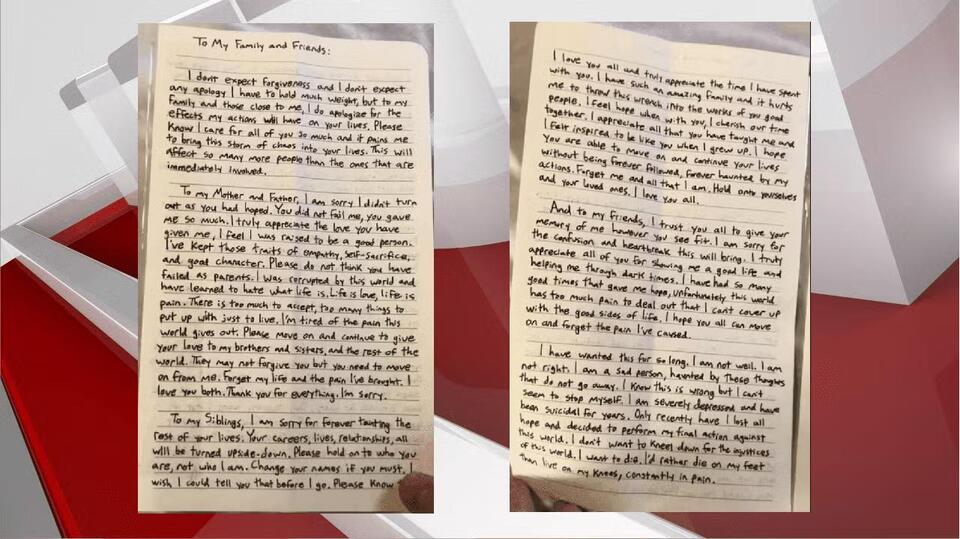 To My Family and Friends:
I don't expect forgiveness and I don't expect
any apology I have to hold much weight, but to my
family and those close to me, I do apologize for the
effects my actions will have on your lives. Please
know I care for all of you so much and it pains me
to bring this storm of chaos into your lives. This will
affect so many more people than the ones that are
immediately involved.
To my Mother and Father, I am sorry I didn't turn
out as you had hoped. You did not fail me, you gave
me so much. I truly appreciate the love you have
given me, I feel I was raised to be a good person.
I've kept those traits of empathy, self-sacrifice,
and good character. Please do not think you have
failed as parents. I was corrupted by this world and
have learned to hate what life is. Life is love, life is
pain. There is too much to accept, too many things to
put up with just to live. I'm tired of the pain this
world gives out. Please move on and continue to give
your love to my brothers and sisters, and the rest of the
world. They may not forgive you but you need to move
on from me. Forget my life and the pain I've brought. I
love you both. Thank you for everything. I'm sorry.
To my Siblings, I am sorry for forever tainting the
rest of your lives. Your careers, lives, relationships, all
will be turned upside-down. Please hold on to who you
are, not who I am. Change your names if you must. I
wish I could tell you that before I go. Please know
I love you all and truly appreciate the time I have spent
with you. I have such an amazing family and it hurts
me to throw this wrench into the works of you good
people. I feel hope when with you, I cherish our time
together. I appreciate all that you have taught me and
I felt inspired to be like you when I grew up. I hope
you are able to move on and continue your lives
without being forever followed, forever haunted by my
actions. Forget me and all that I am. Hold onto yourselves
and your loved ones. I love you all.
And to my friends, I trust you all to give your
memory of me however you see fit. I am sorry for
the confusion and heartbreak this will bring. I truly
appreciate all of you for showing me a good life and
helping me through dark times. I have had so many
good times that gave me hope, unfortunately this world
has too much pain to deal out that I can't cover up
with the good sides of life. I hope you all can move
on and forget the pain I've caused.
I have wanted this for so long. I am not well. I am
not right. I am a sad person, haunted by these thoughts
that do not go away. I know this is wrong but I can't
seem to stop myself. I am severely depressed and have
been suicidal for years. Only recently have I lost all
hope and decided to perform my final action against
this world. I don't want to kneel down for the injustices
of this world. I want to die. I'd rather die on my feet
than live on my knees, constantly in pain.